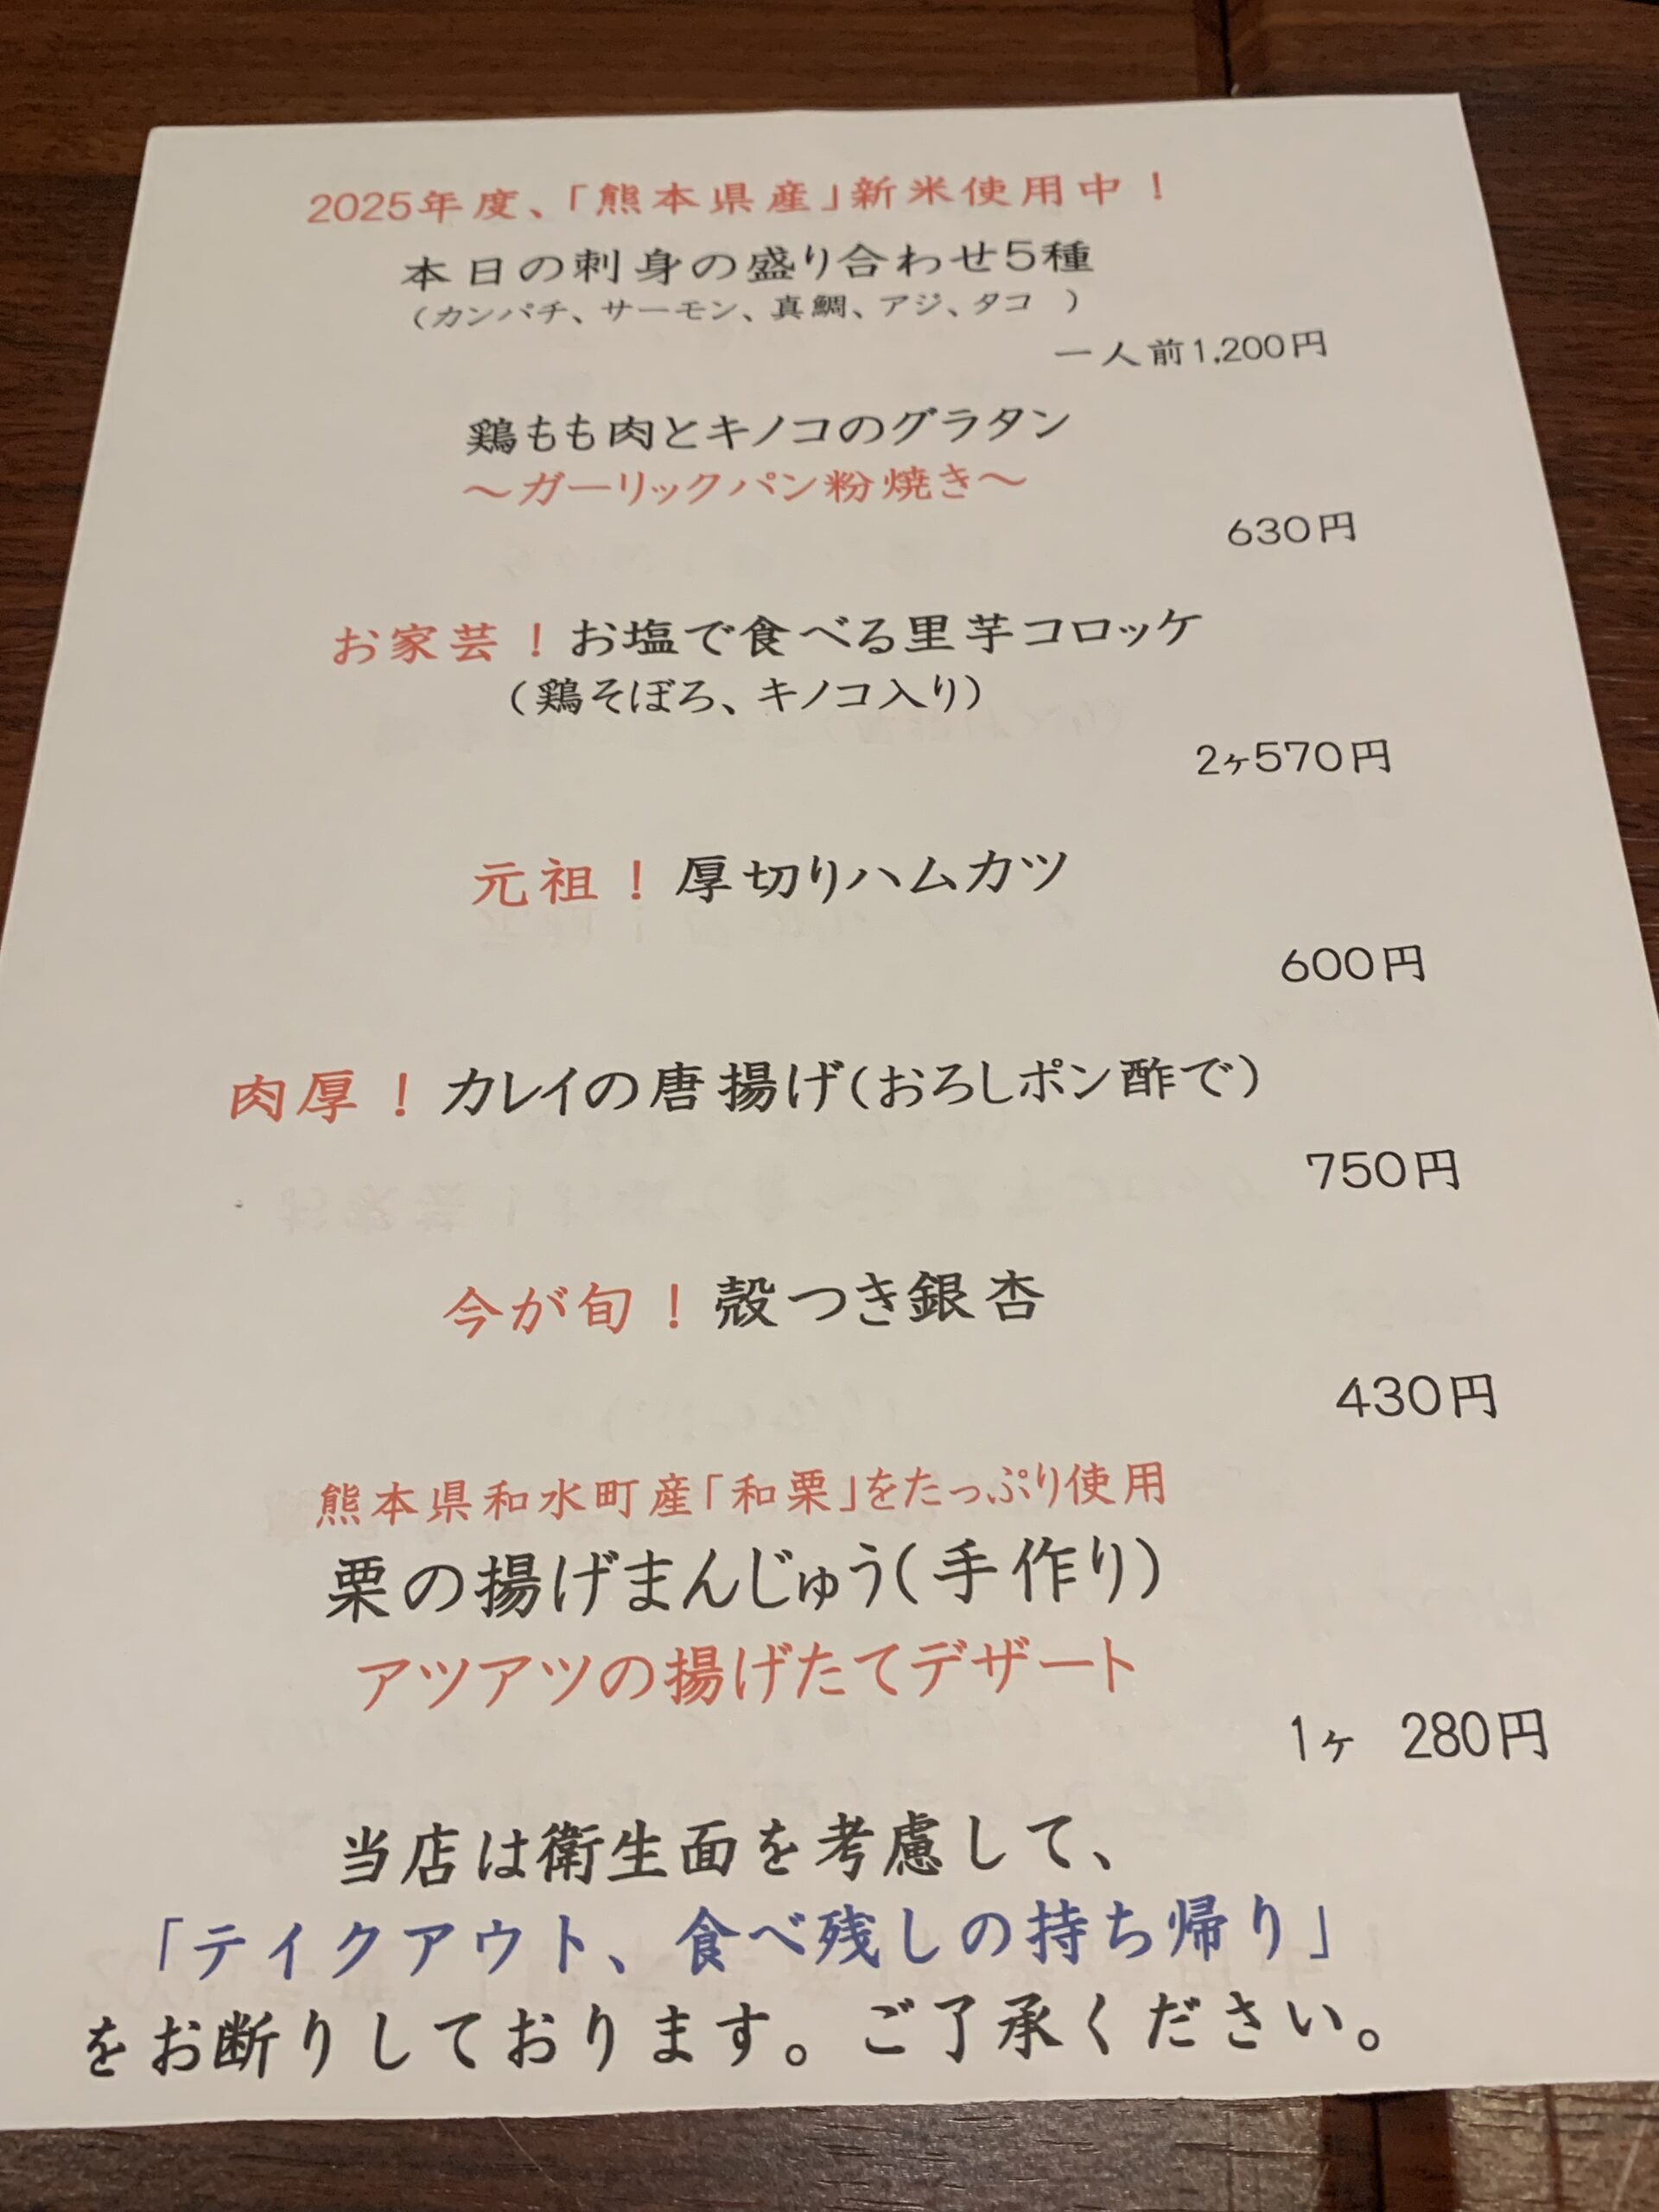 2025年度、「熊本県産」新米使用中！
本日の刺身の盛り合わせ5種
（カンパチ、サーモン、真鯛、アジ、タコ　）
一人前1,200円
鶏もも肉とキノコのグラタン
～ガーリックパン粉焼き～
630円
お家芸！お塩で食べる里芋コロッケ
（鶏そぼろ、キノコ入り）
2ヶ570円
元祖！厚切りハムカツ
600円
肉厚！カレイの唐揚げ（おろしポン酢で）
750円
今が旬！殻つき銀杏
430円
熊本県和水町産「和栗」をたっぷり使用
栗の揚げまんじゅう（手作り）
アツアツの揚げたてデザート
1ヶ　280円
当店は衛生面を考慮して、
「テイクアウト、食べ残しの持ち帰り」
をお断りしております。ご了承ください。